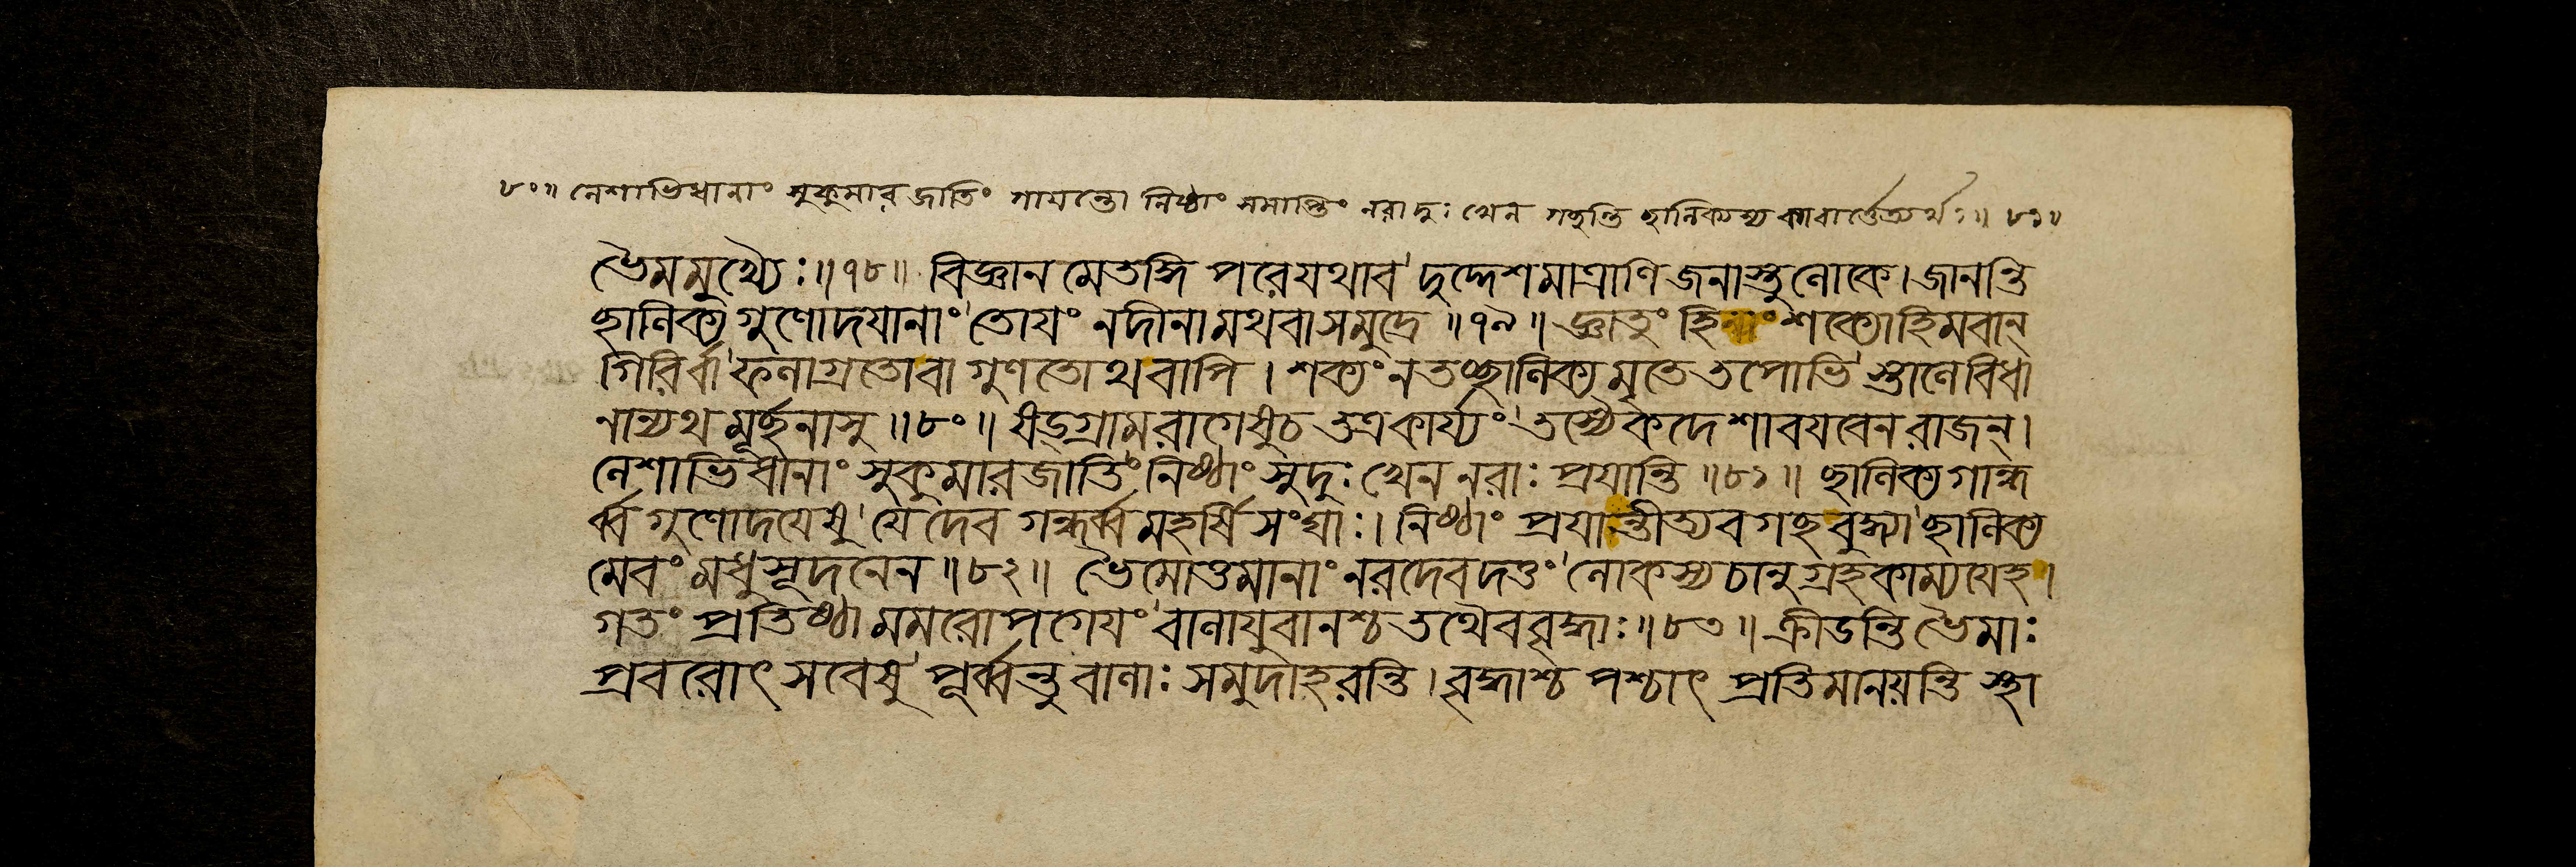 ৮০॥ লেশাভিধানাং সুকুমারজাতিং গায়ন্তো নিষ্ঠাং সমাপ্তিং নরা দুঃখেন গচ্ছন্তি ছালিক্যস্য কাবার্ত্তেত্যর্থঃ॥ ৮১॥
ভৈমমুখ্যৈঃ॥৭৮॥ বিজ্ঞানমেতদ্ধি পরে যথাবদুদ্দেশমাত্রাণি জনাস্তু লোকে। জানন্তি
ছালিক্যগুণোদয়ানাং তোয়ং নদীনামথবাসমুদ্রে॥৭৯॥ জ্ঞাতুং হি নাং শক্যোহিমবান্
গিরির্বা ফলাগ্রতো বা গুণতোথবাপি। শক্যং ন তচ্ছালিক্যমৃতে তপোভিস্তালেবিধা
নান্যথ মূর্ছনাসু॥৮০॥ ষড্গ্রামরাগেষু চ তত্র কার্য্যং তস্যৈকদেশাবয়বেন রাজন্।
লেশাভিধানাং সুকুমারজাতিং নিষ্ঠাং সুদুঃখেন নরাঃ প্রয়ান্তি॥৮১॥ ছালিক্যগান্ধ
র্ব্বগুণোদয়েষু যে দেবগন্ধর্ব্বমহর্ষিসংঘাঃ। নিষ্ঠাং প্রয়ান্তীত্যবগছ বুদ্ধ্যা ছালিক্য
মেবং মধুসূদনেন॥৮২॥ ভৈমোত্তমানাং নরদেবদত্তং লোকস্য চানুগ্রহকাম্যয়েহ।
গতং প্রতিষ্ঠামমরোপগেয়ং বালা যুবানশ্চ তথৈব বৃদ্ধাঃ॥৮৩॥ ক্রীডন্তি ভৈমাঃ
প্রবরোৎসবেষু পূর্ব্বন্তু বালাঃ সমুদাহরন্তি। বৃদ্ধাশ্চ পশ্চাৎ প্রতিমানয়ন্তি স্থা